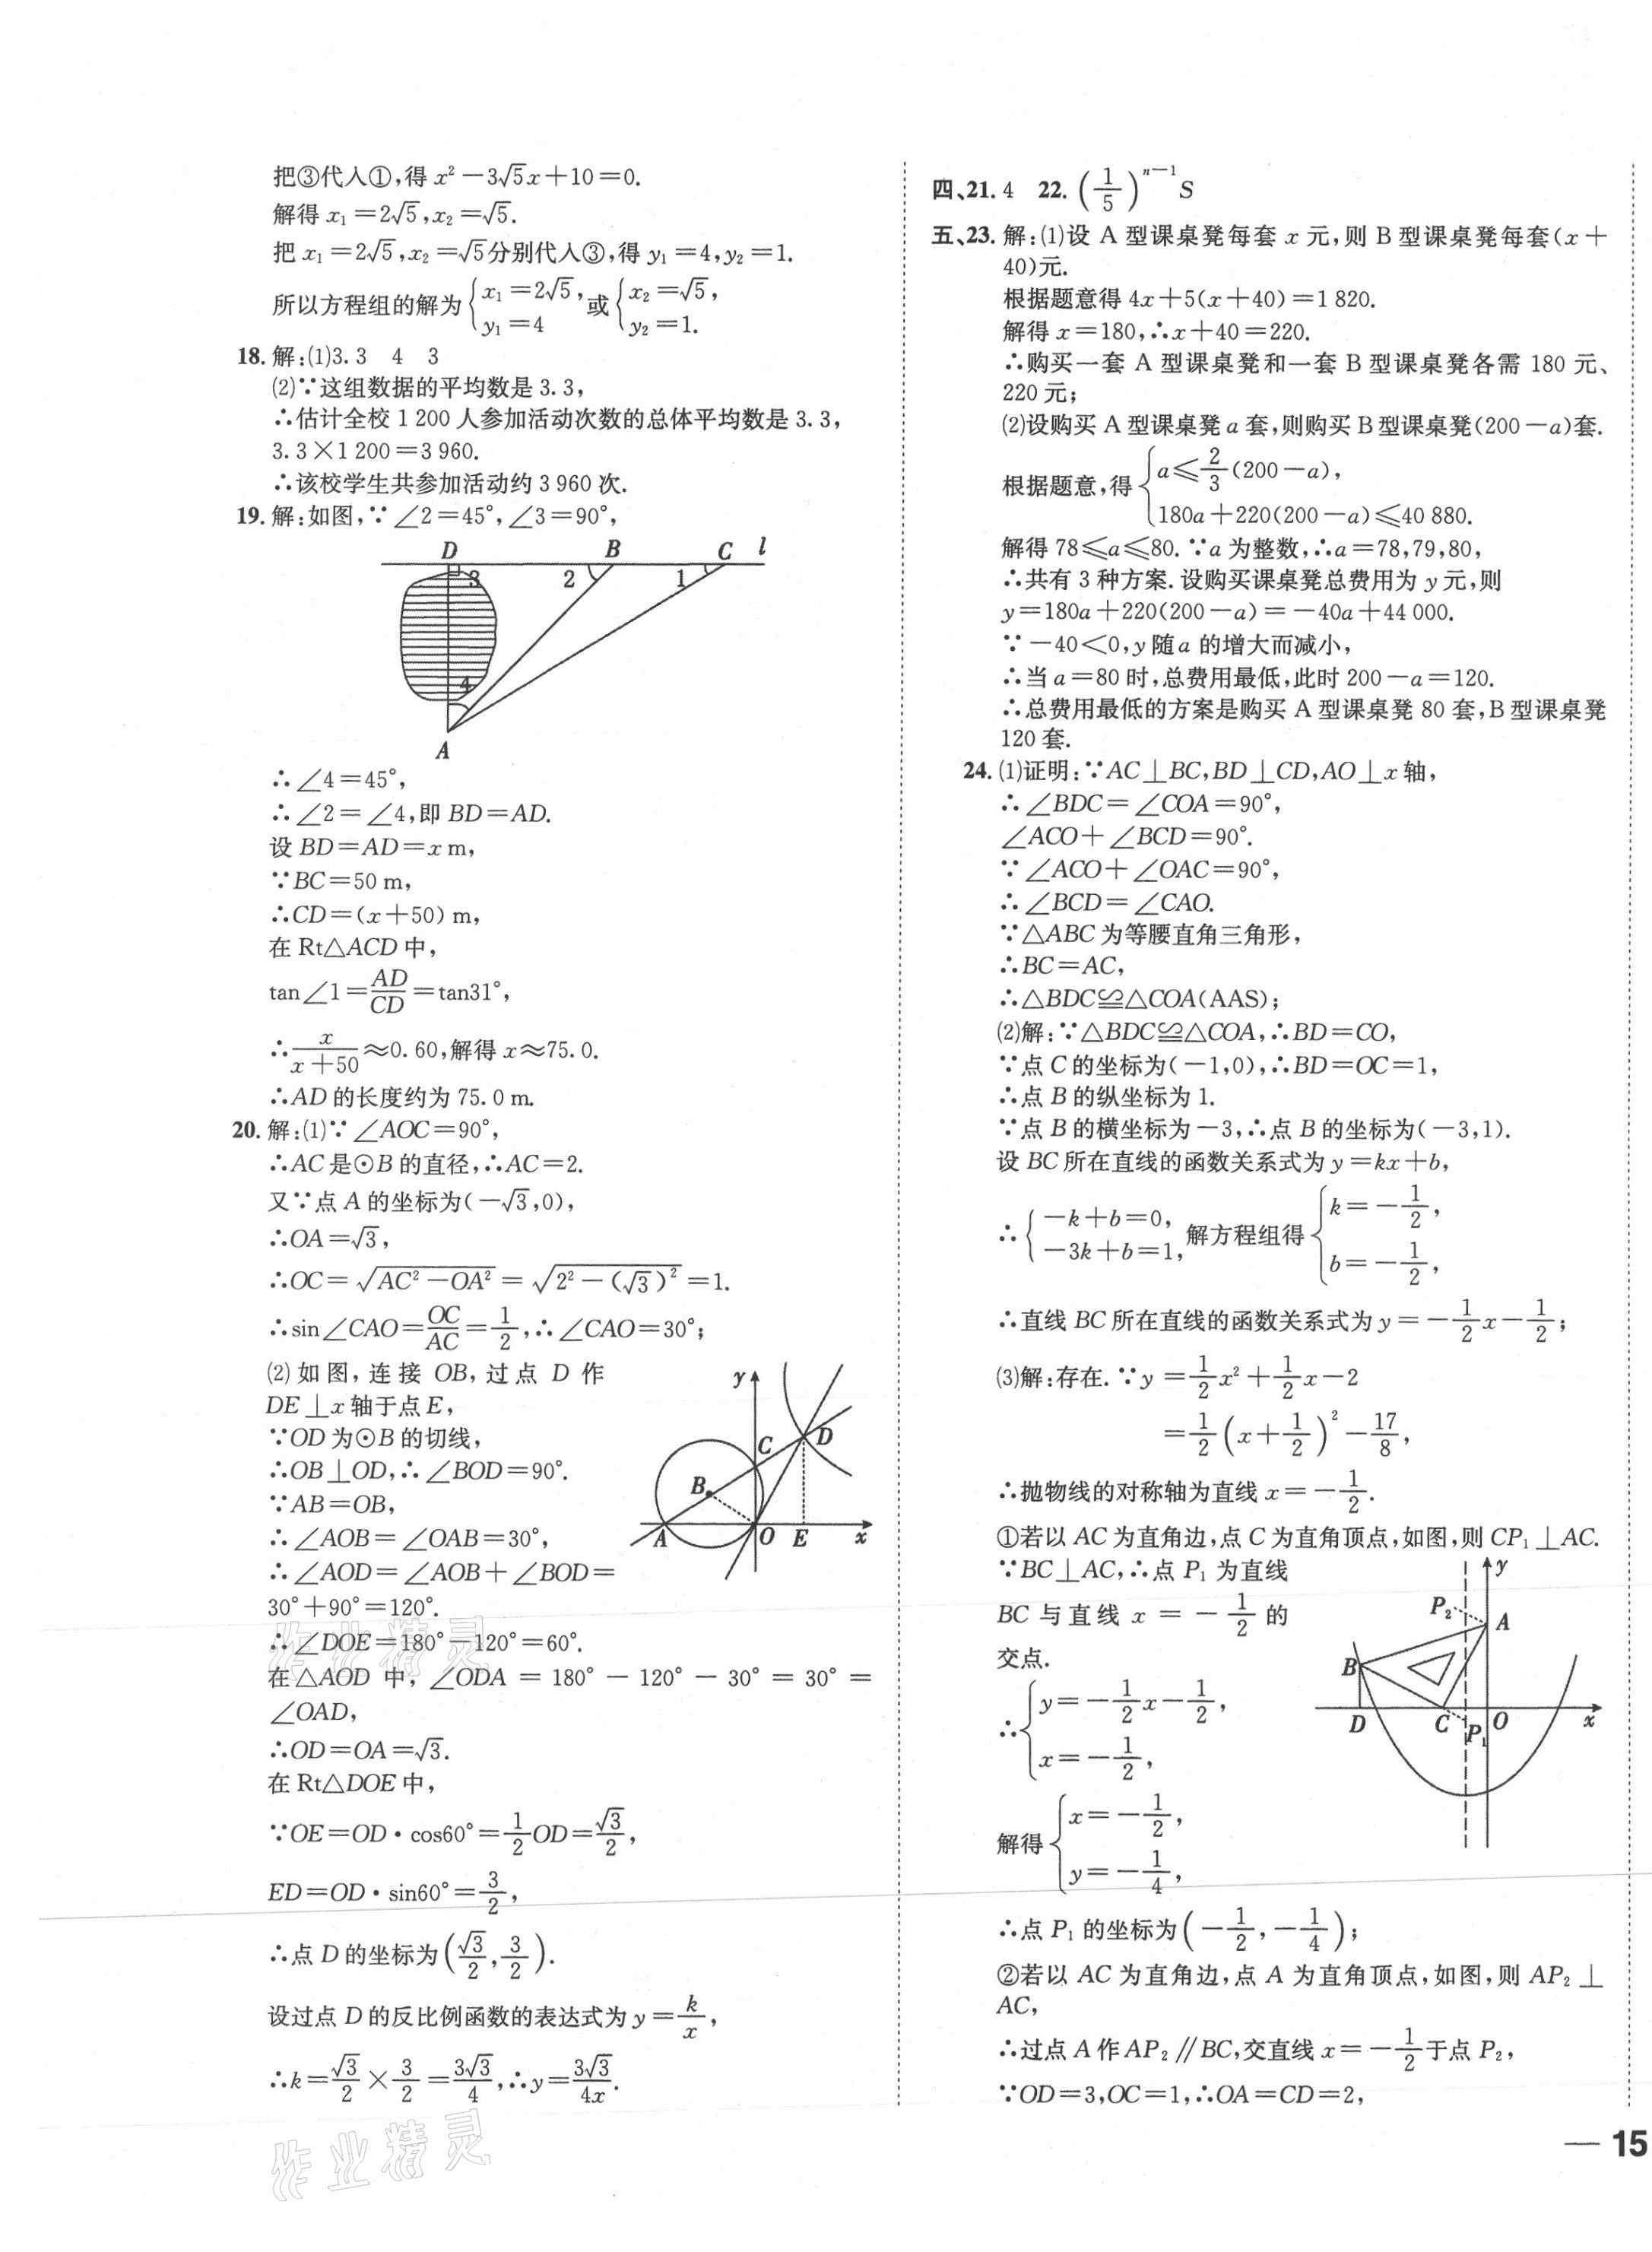 把③代入①,得 x²－3√5x＋10＝0.
解得 x₁＝2√5,x₂＝√5.
把 x₁＝2√5,x₂＝√5分别代入③,得 y₁＝4,y₂＝1.
所以方程组的解为{x₁＝2√5, y₁＝4 或{x₂＝√5, y₂＝1.
18. 解:(1)3.3 4 3
(2)∵这组数据的平均数是 3.3,
∴估计全校 1 200 人参加活动次数的总体平均数是 3.3,
3.3×1 200＝3 960.
∴该校学生共参加活动约 3 960 次.
19. 解:如图,∵∠2＝45°,∠3＝90°,
D B C l
3 2 1
4
A
∴∠4＝45°,
∴∠2＝∠4,即 BD＝AD.
设 BD＝AD＝x m,
∵BC＝50 m,
∴CD＝(x＋50) m,
在 Rt△ACD 中,
tan∠1＝AD/CD＝tan31°,
∴x/(x＋50)≈0.60,解得 x≈75.0.
∴AD 的长度约为 75.0 m.
20. 解:(1)∵∠AOC＝90°,
∴AC 是⊙B 的直径,∴AC＝2.
又∵点 A 的坐标为(－√3,0),
∴OA＝√3,
∴OC＝√(AC²－OA²)＝√(2²－(√3)²)＝1.
∴sin∠CAO＝OC/AC＝1/2,∴∠CAO＝30°;
(2)如图,连接 OB,过点 D 作
DE⊥x 轴于点 E,
∵OD 为⊙B 的切线,
∴OB⊥OD,∴∠BOD＝90°.
∵AB＝OB,
∴∠AOB＝∠OAB＝30°,
∴∠AOD＝∠AOB＋∠BOD＝
30°＋90°＝120°.
y
C D
B
A O E x
∴∠DOE＝180°－120°＝60°.
在△AOD 中,∠ODA＝180°－120°－30°＝30°＝
∠OAD,
∴OD＝OA＝√3.
在 Rt△DOE 中,
∵OE＝OD·cos60°＝1/2OD＝√3/2,
ED＝OD·sin60°＝3/2,
∴点 D 的坐标为(√3/2,3/2).
设过点 D 的反比例函数的表达式为 y＝k/x,
∴k＝√3/2×3/2＝3√3/4,∴y＝3√3/4x.
作业精灵
作业精灵
四、21. 4 22. (1/5)ⁿ⁻¹S
五、23. 解:(1)设 A 型课桌凳每套 x 元,则 B 型课桌凳每套(x＋
40)元.
根据题意得 4x＋5(x＋40)＝1 820.
解得 x＝180,∴x＋40＝220.
∴购买一套 A 型课桌凳和一套 B 型课桌凳各需 180 元、
220 元;
(2)设购买 A 型课桌凳 a 套,则购买 B 型课桌凳(200－a)套.
根据题意,得{a≤2/3(200－a), 180a＋220(200－a)≤40 880.
解得 78≤a≤80.∵a 为整数,∴a＝78,79,80,
∴共有 3 种方案.设购买课桌凳总费用为 y 元,则
y＝180a＋220(200－a)＝－40a＋44 000.
∵－40＜0,y 随 a 的增大而减小,
∴当 a＝80 时,总费用最低,此时 200－a＝120.
∴总费用最低的方案是购买 A 型课桌凳 80 套,B 型课桌凳
120 套.
24. (1)证明:∵AC⊥BC,BD⊥CD,AO⊥x 轴,
∴∠BDC＝∠COA＝90°,
∠ACO＋∠BCD＝90°.
∵∠ACO＋∠OAC＝90°,
∴∠BCD＝∠CAO.
∵△ABC 为等腰直角三角形,
∴BC＝AC,
∴△BDC≌△COA(AAS);
(2)解:∵△BDC≌△COA,∴BD＝CO,
∵点 C 的坐标为(－1,0),∴BD＝OC＝1,
∴点 B 的纵坐标为 1.
∵点 B 的横坐标为－3,∴点 B 的坐标为(－3,1).
设 BC 所在直线的函数关系式为 y＝kx＋b,
∴{－k＋b＝0, －3k＋b＝1, 解方程组得{k＝－1/2, b＝－1/2,
∴直线 BC 所在直线的函数关系式为 y＝－1/2x－1/2;
(3)解:存在.∵y＝1/2x²＋1/2x－2
＝1/2(x＋1/2)²－17/8,
∴抛物线的对称轴为直线 x＝－1/2.
①若以 AC 为直角边,点 C 为直角顶点,如图,则 CP₁⊥AC.
∵BC⊥AC,∴点 P₁ 为直线
BC 与直线 x＝－1/2 的
交点.
∴{y＝－1/2x－1/2, x＝－1/2,
解得{x＝－1/2, y＝－1/4,
y
P₂ A
B
D C P₁ O x
∴点 P₁ 的坐标为(－1/2,－1/4);
②若以 AC 为直角边,点 A 为直角顶点,如图,则 AP₂⊥
AC,
∴过点 A 作 AP₂∥BC,交直线 x＝－1/2于点 P₂,
∵OD＝3,OC＝1,∴OA＝CD＝2,
— 15